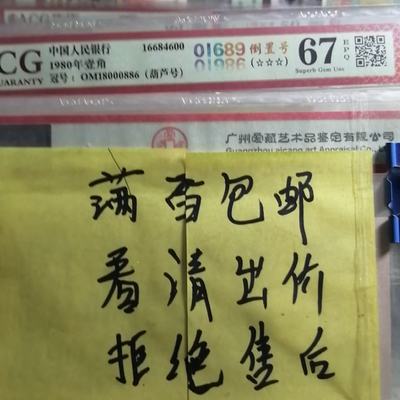 CG
GUARANTY
中国人民银行
1980年壹角
冠号：OMI8000886（葫芦号）
16684600
01689 倒置号
01986（☆☆☆）
67 EPQ
Superb Gem Unc
广州爱藏艺术品鉴定有限公司
Guangzhou aicang art Appraisal Co.,
满百包邮
看清出价
拒绝售后